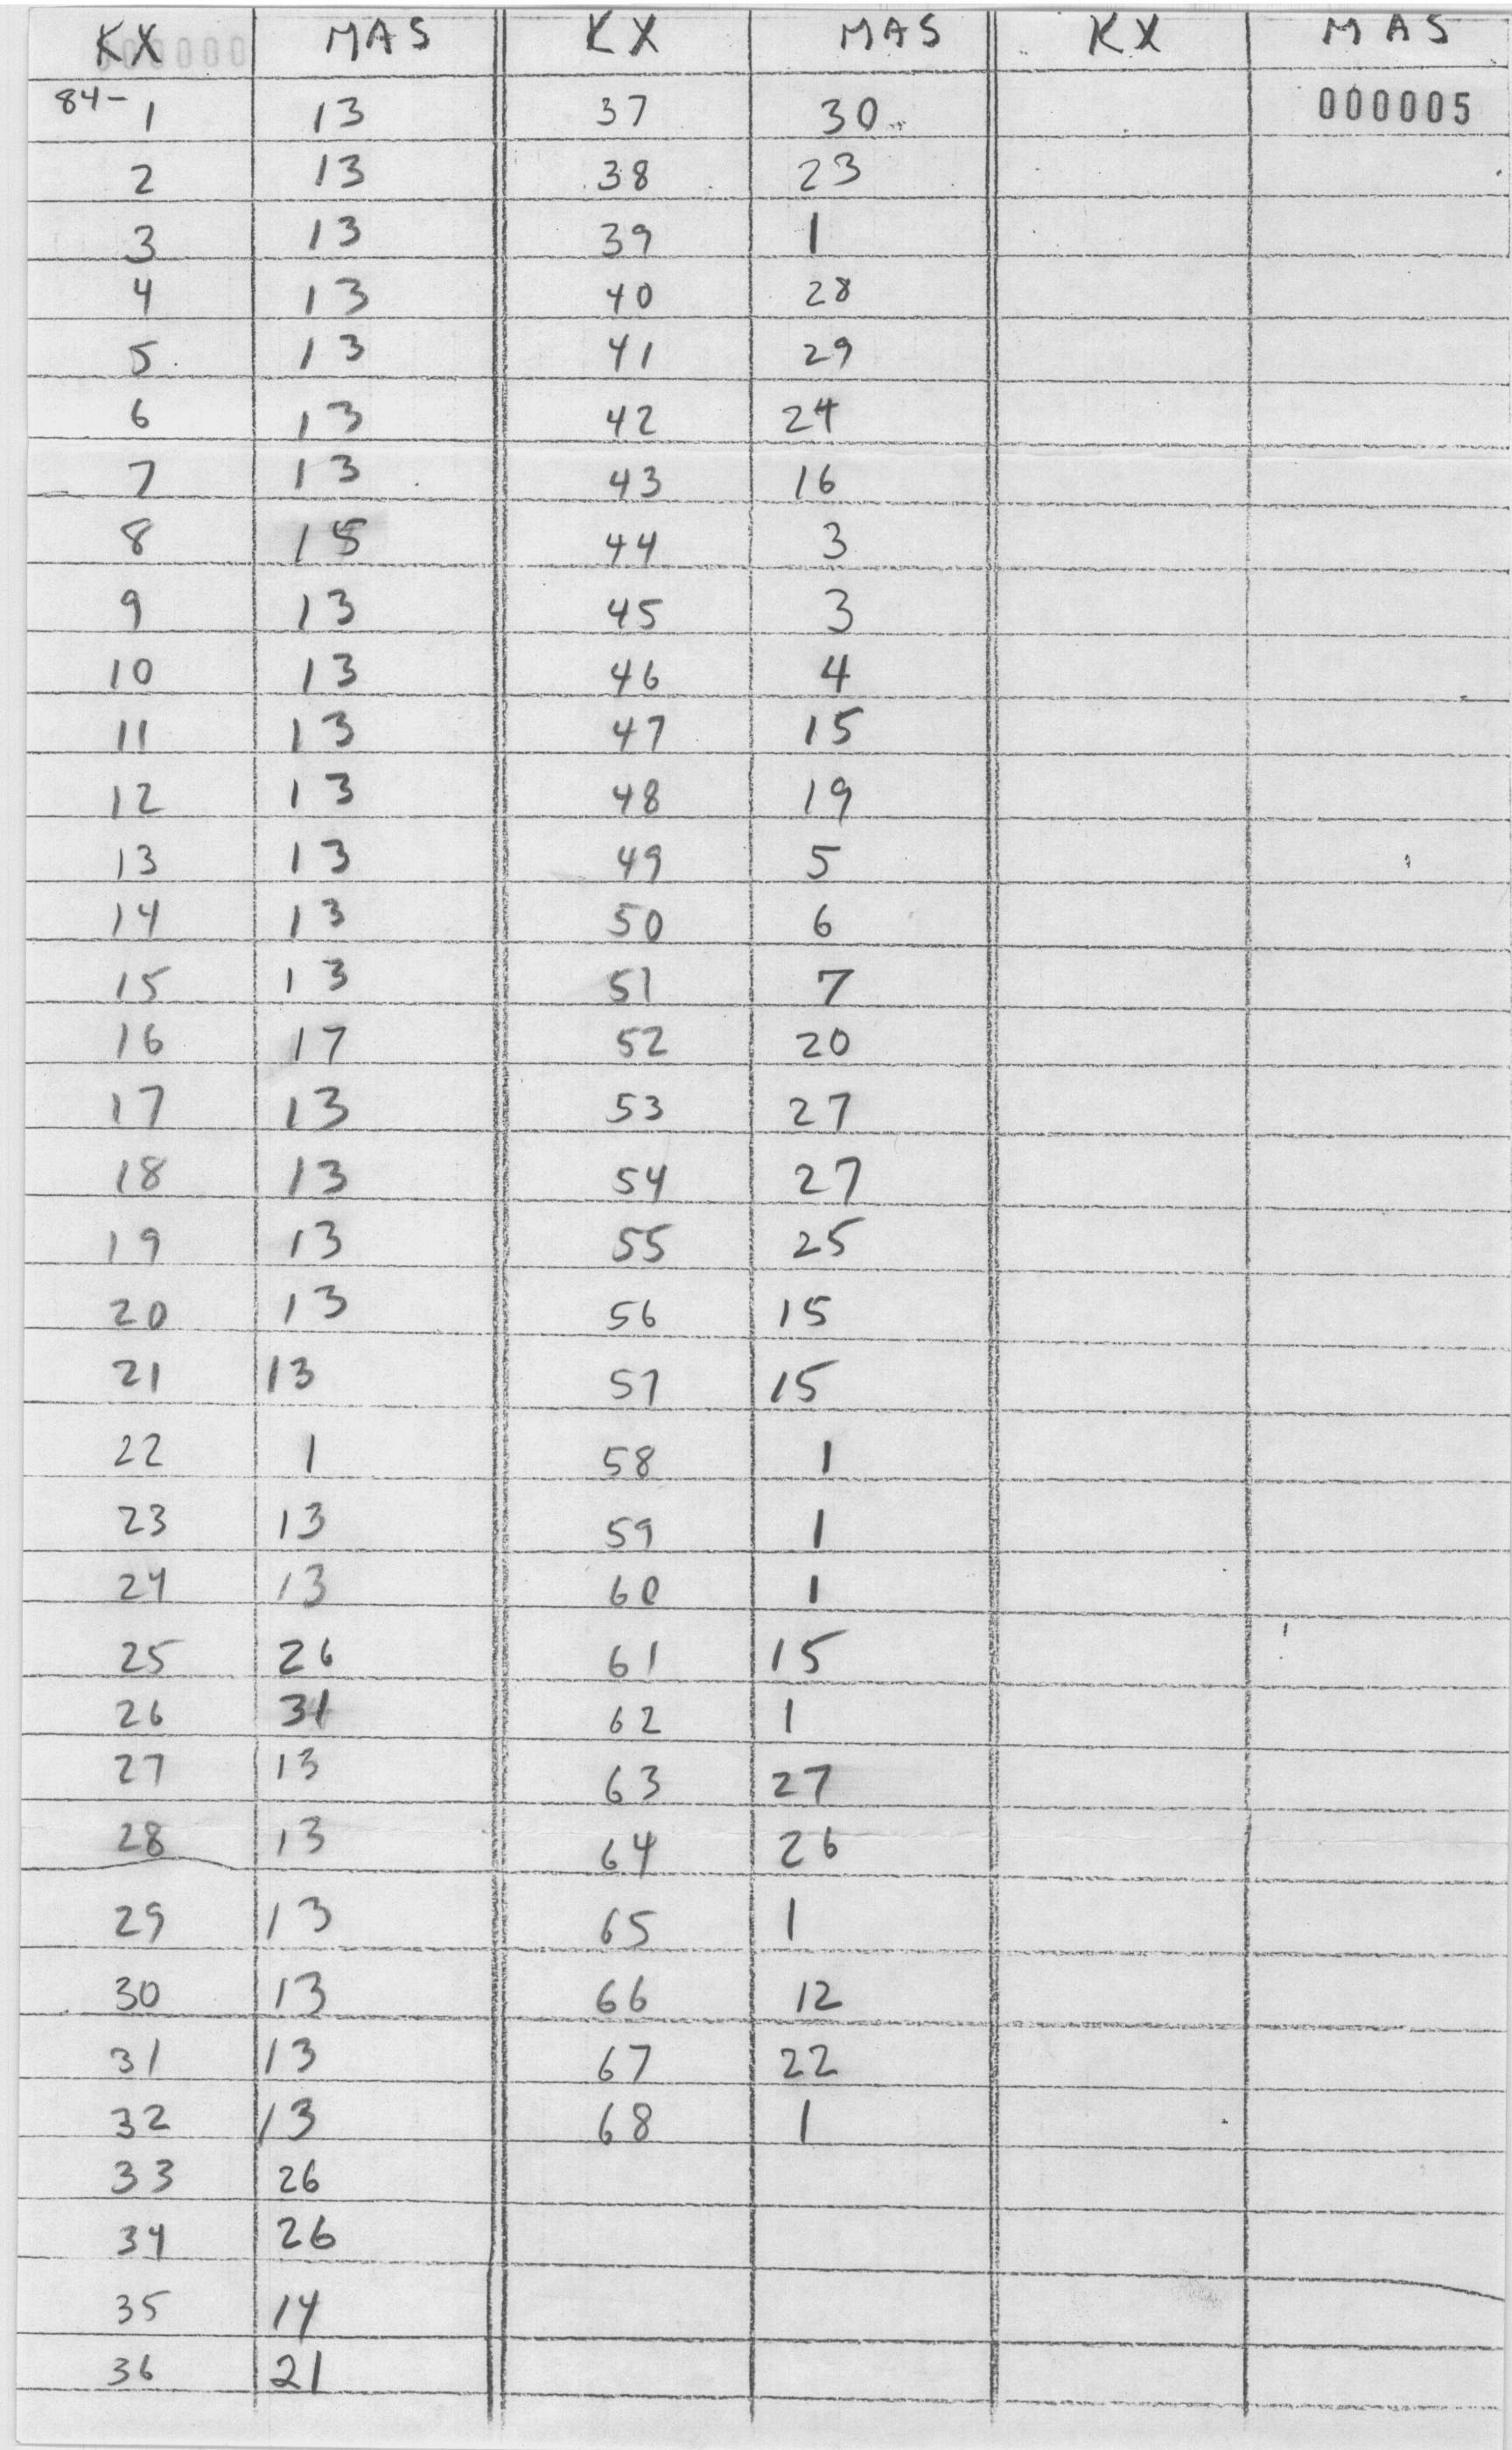 KX MAS KX MAS KX MAS
000000
84- 1 13 37 30 000005
2 13 38 23
3 13 39 1
4 13 40 28
5 13 41 29
6 13 42 24
7 13 43 16
8 15 44 3
9 13 45 3
10 13 46 4
11 13 47 15
12 13 48 19
13 13 49 5
14 13 50 6
15 13 51 7
16 17 52 20
17 13 53 27
18 13 54 27
19 13 55 25
20 13 56 15
21 13 57 15
22 1 58 1
23 13 59 1
24 13 60 1
25 26 61 15
26 31 62 1
27 13 63 27
28 13 64 26
29 13 65 1
30 13 66 12
31 13 67 22
32 13 68 1
33 26
34 26
35 14
36 21